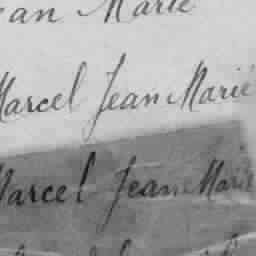 ean Marie
Marcel Jean Marie
Marcel Jean Marie